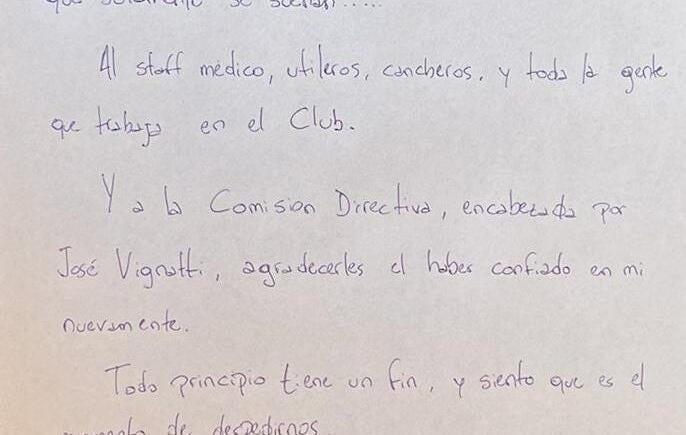 que solamente se sueñan.....
Al staff médico, utileros, cancheros, y toda la gente
que trabaja en el Club.
Y a la Comision Directiva, encabezada por
José Vignatti, agradecerles el haber confiado en mi
nuevamente.
Todo principio tiene un fin, y siento que es el
momento de despedirnos